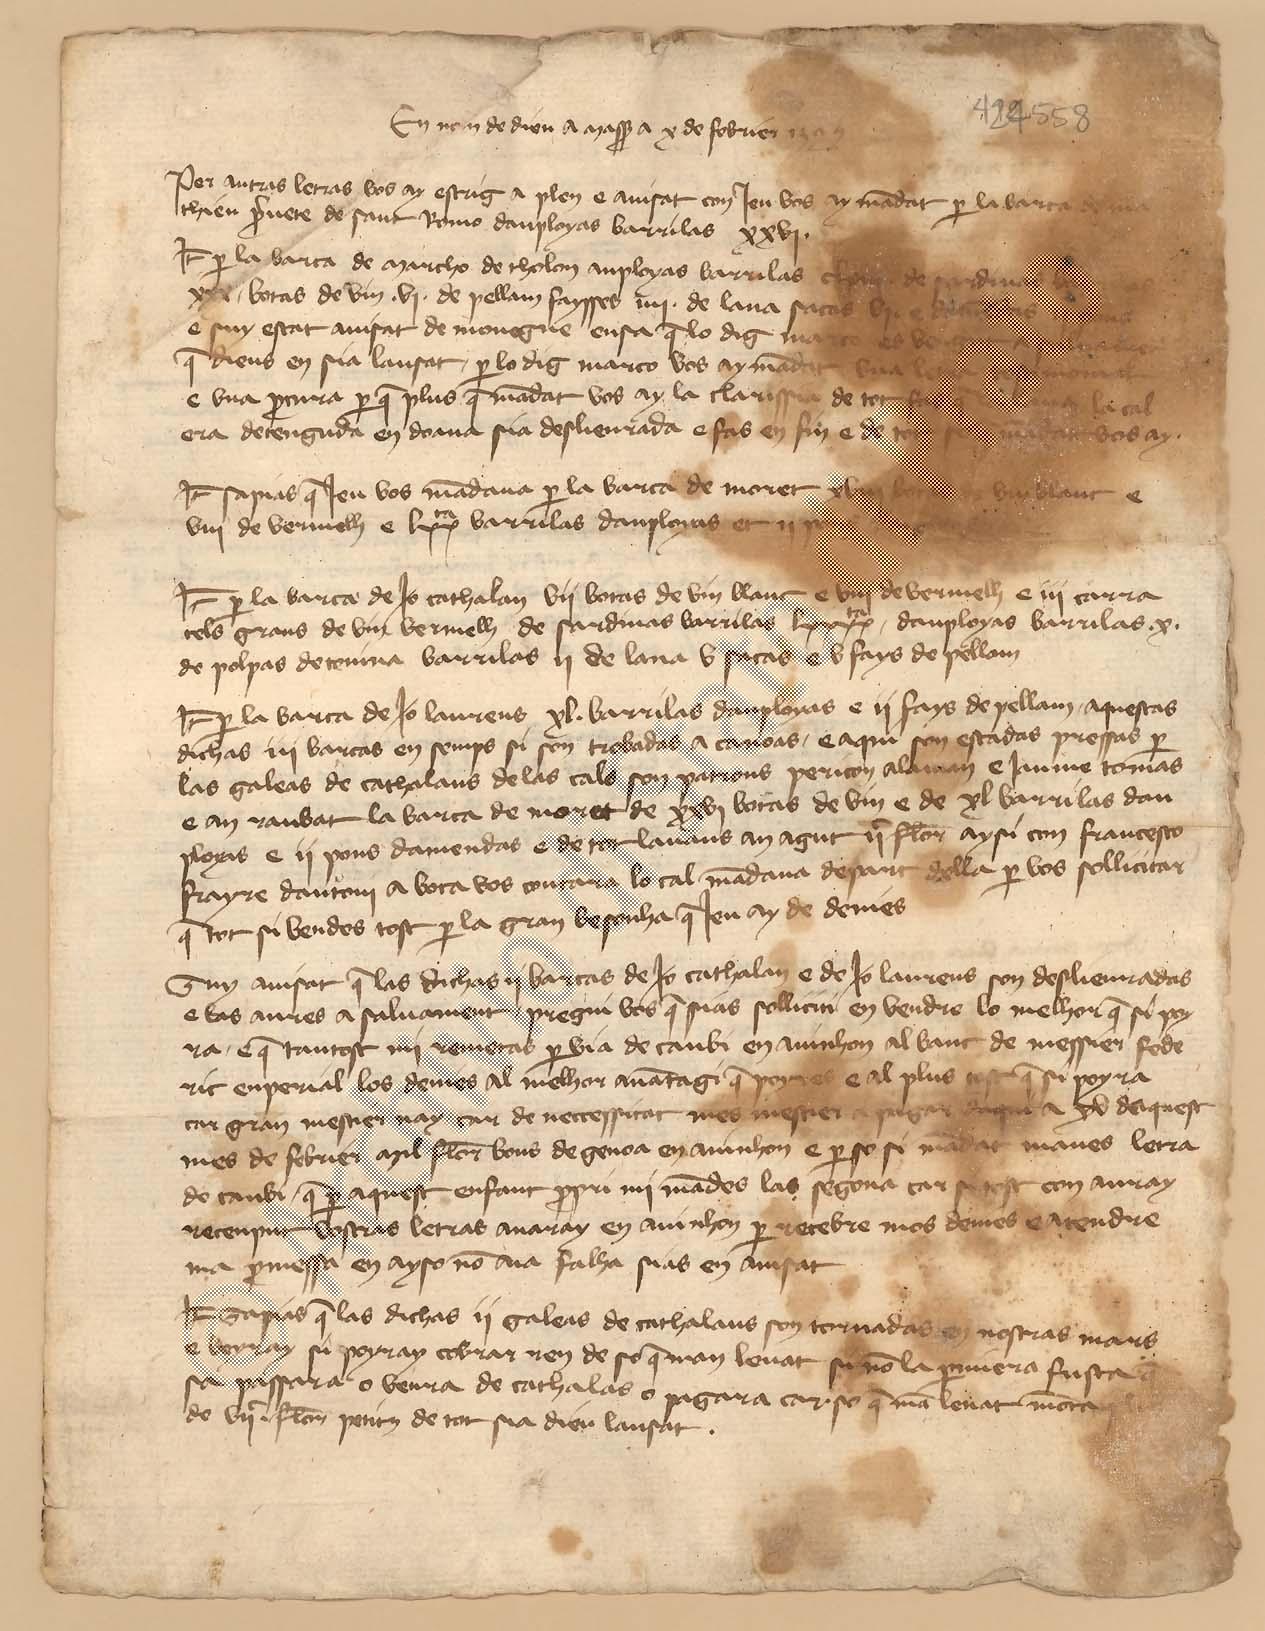 424558
En nom de dieu a x de febrier
Per autras letras vos ay escrig a plen e avisat con Ieu vos ay mādat p la barca de ma
thieu de sant Romo danployas barrilas xxvj.
It p la barca de marcho de tholon anployas barrilas de sardinas
xxx. botas de vin .vj. de pellam faysses iiij. de lana sacas vj. e
e suy estat avisat de monegue ensa q̄ lo dig marco es
q̄ dieus en sia lausat. p lo dig marco vos ay mādat una
e una pcura p q̄ plus q̄ mādat vos ay la de tot la cal
era detenguda en doana sia desliurada e fas en fin e de tot mādat vos ay.
It sapias q̄ Ieu vos mādava p la barca de moret vin blanc e
viij de vermelh e lxx ta barrilas danployas et ij
It p la barca de Jo cathalan vij botas de vin blanc e viij de vermelh e iij carra
tels grans de vin vermelh de sardinas barrilas lxxx ta, danployas barrilas .x.
de polpas de tonina barrilas ij de lana v sacas e v fays de pellam
It p la barca de Jo laurens xl. barrilas danployas e ij fays de pellam. aquestas
dichas iij barcas en semps si son trobadas a canoas, e aqui son estadas pressas p
las galeas de cathalans de las cals son patrons pericon alaman e Jaume tomas
e an raubat la barca de moret de xxvj botas de vin e de xl barrilas dan
ployas e ij pons damendas e de tot lavans an agut flor aysi con francesco
frayre dantoni a boca vos contara lo cal mādava desanc della p vos sollicitar
q̄ tot si vendes tost p la gran besonha q̄ Ieu ay de deniés
Suy avisat q̄ las dichas ij barcas de Jo cathalan e de Jo laurens son desliuradas
e las aures a salvament. pregui vos q̄ sias solliciti en vendre lo melhor q̄ si poy
ra, e q̄ tantost mi remetas p via de canbi en avinhon al banc de messier fede
ric enperial los deniés al melhor avātagi q̄ poyres e al plus tost q̄ si poyra
car gran mestier nay car de neccessitat mes mestier a pagar daqui a xv daquest
mes de febrier mil flor bons de genoa en avinhon e p so si mādat maves letra
de canbi, q̄ p aquest enfant ppri mi mādes las segona car si tost con auray
receuput vostras letras anaray en avinhon p recebre mos deniés e atendre
ma pmessa en ayso nō aia falha sias en avisat
It Sapias q̄ las dichas ij galeas de cathalans son tornadas en nostras mars
e veyray si poyray cobrar ren de so q̄ man levat si nō la pmiera fusta q̄
sa passara o venra de cathalas o pagara car so q̄ mā levat mōta
de flor petitz de tot sia dieu lausat.